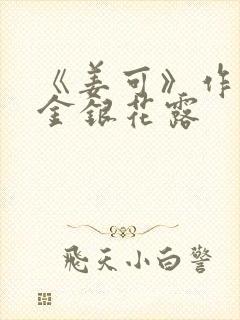 《姜可》作
金銀花露
飛天小白警